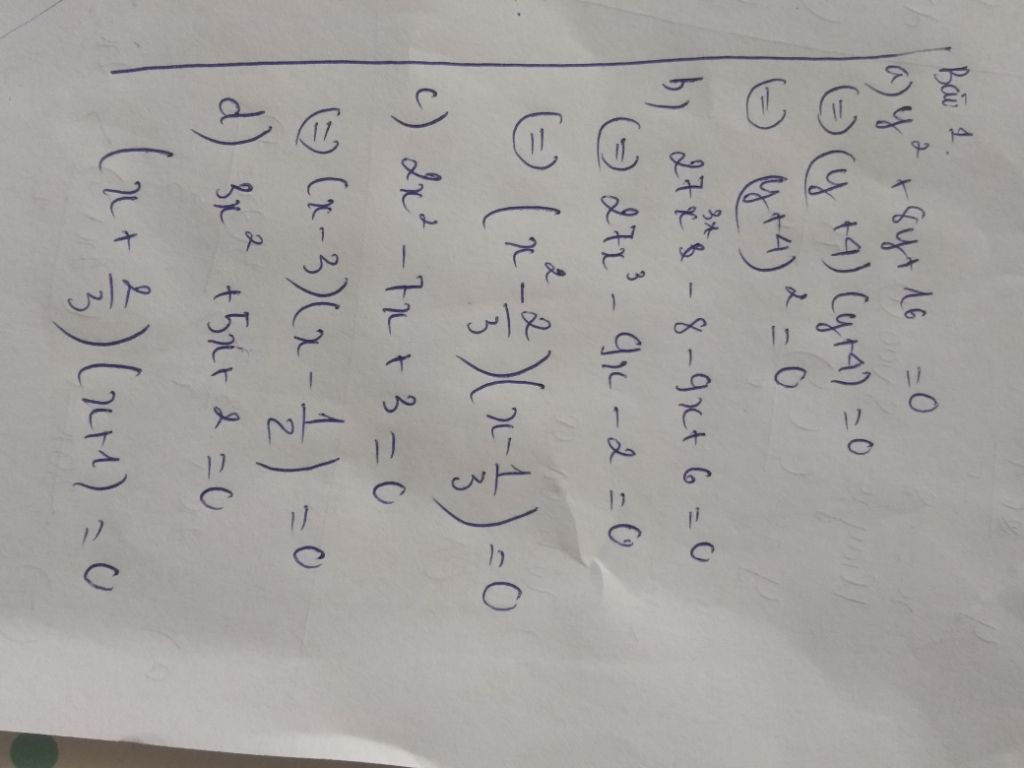 Bài 1.
a) y² + 8y + 16 = 0
(=) (y + 4)(y+4) = 0
(=) (y+4)² = 0
b) 27x³ - 8 - 9x + 6 = 0
(=) 27x³ - 9x - 2 = 0
(=) (x² - 2/3)(x - 1/3) = 0
c) 2x² - 7x + 3 = 0
(=) (x - 3)(x - 1/2) = 0
d) 3x² + 5x + 2 = 0
(x + 2/3)(x+1) = 0